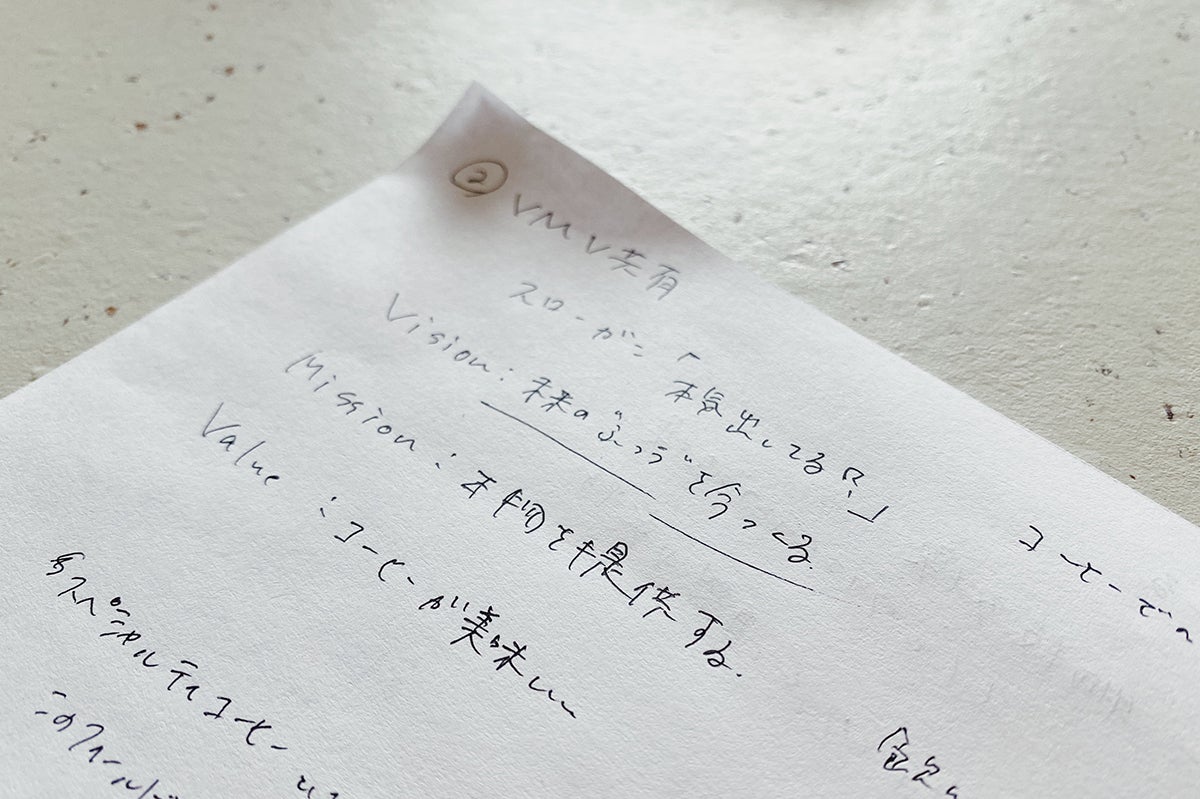 ② VMV共有
スローガン「本気出してる?」
Vision:未来の"ふつう"を今つくる.
Mission:本物を提供する.
Value:コーヒーが美味しい
コーヒーでの
スペシャルティコーヒー
このフィールド